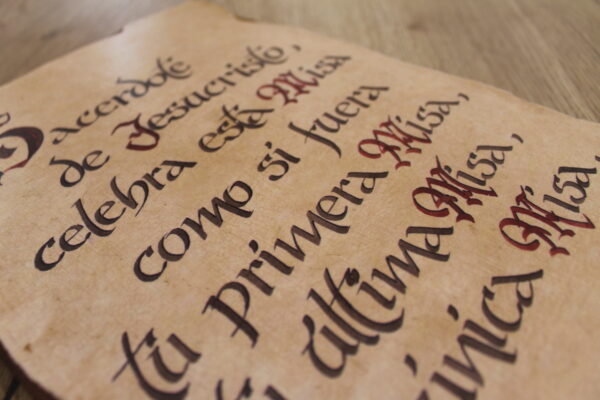 Sacerdote
de Jesucristo,
celebra esta Misa
como si fuera
tu primera Misa,
última Misa,
única Misa,